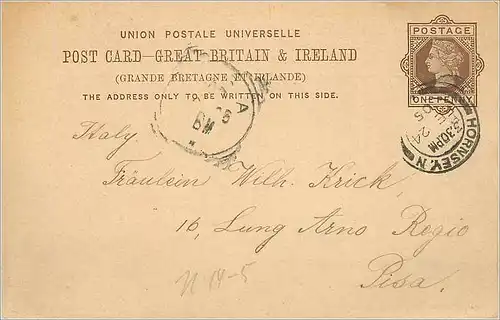 UNION POSTALE UNIVERSELLE
POST CARD—GREAT BRITAIN & IRELAND
(GRANDE BRETAGNE ET IRLANDE)
THE ADDRESS ONLY TO BE WRITTEN ON THIS SIDE.
POSTAGE
ONE PENNY
HORNSEY. N
24
Italy.
Fräulein Wilh. Krick,
16, Lung Arno Regio
Pisa.